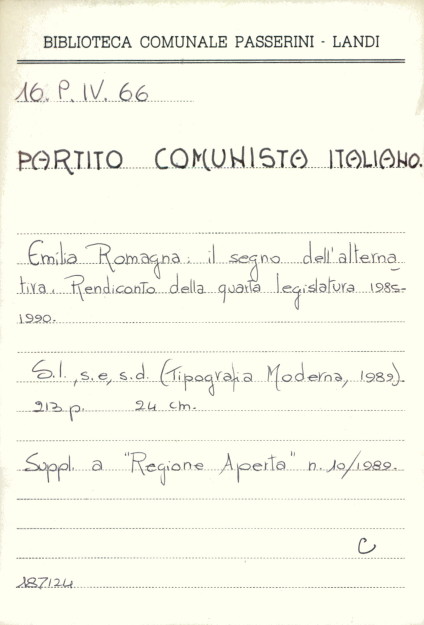 BIBLIOTECA COMUNALE PASSERINI - LANDI
16. P. IV. 66
PARTITO COMUNISTA ITALIANO.
Emilia Romagna: il segno dell'alterna
tiva. Rendiconto della quarta legislatura 1985-
1990.
S.l., s.e, s.d. (Tipografia Moderna, 1989).
213 p. 24 cm.
Suppl. a "Regione Aperta" n. 10/1989.
C
187124